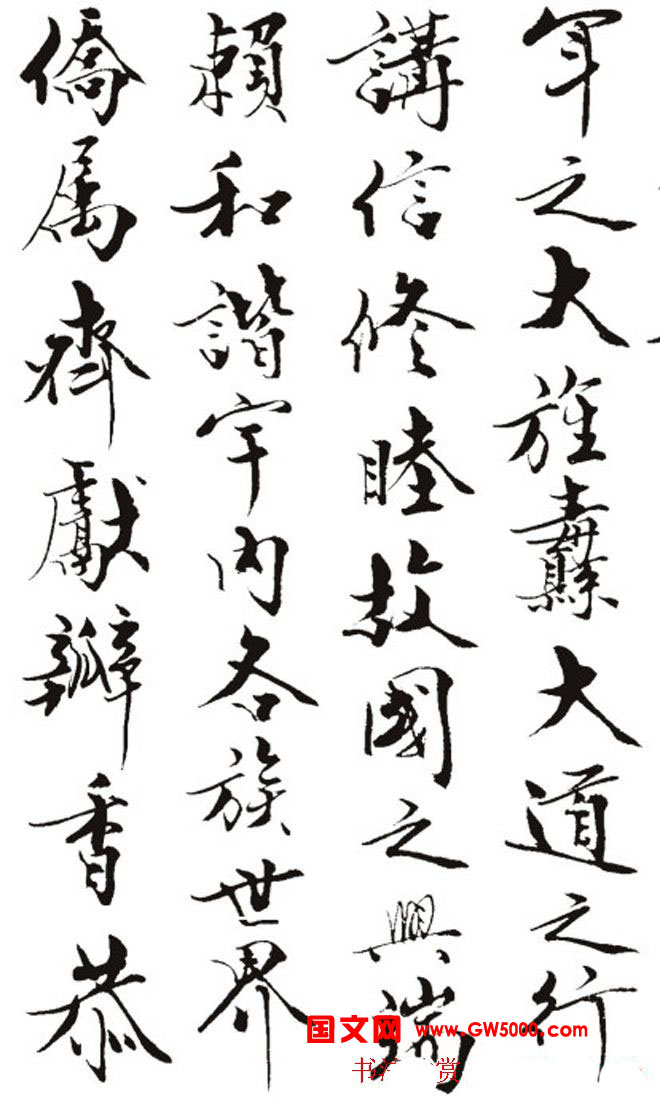 之大旌纛大道之行
講信修睦故國之興端
賴和諧宇内各族世界
僑属齊獻瓣香恭
国文网 www.GW5000.com
书 赏